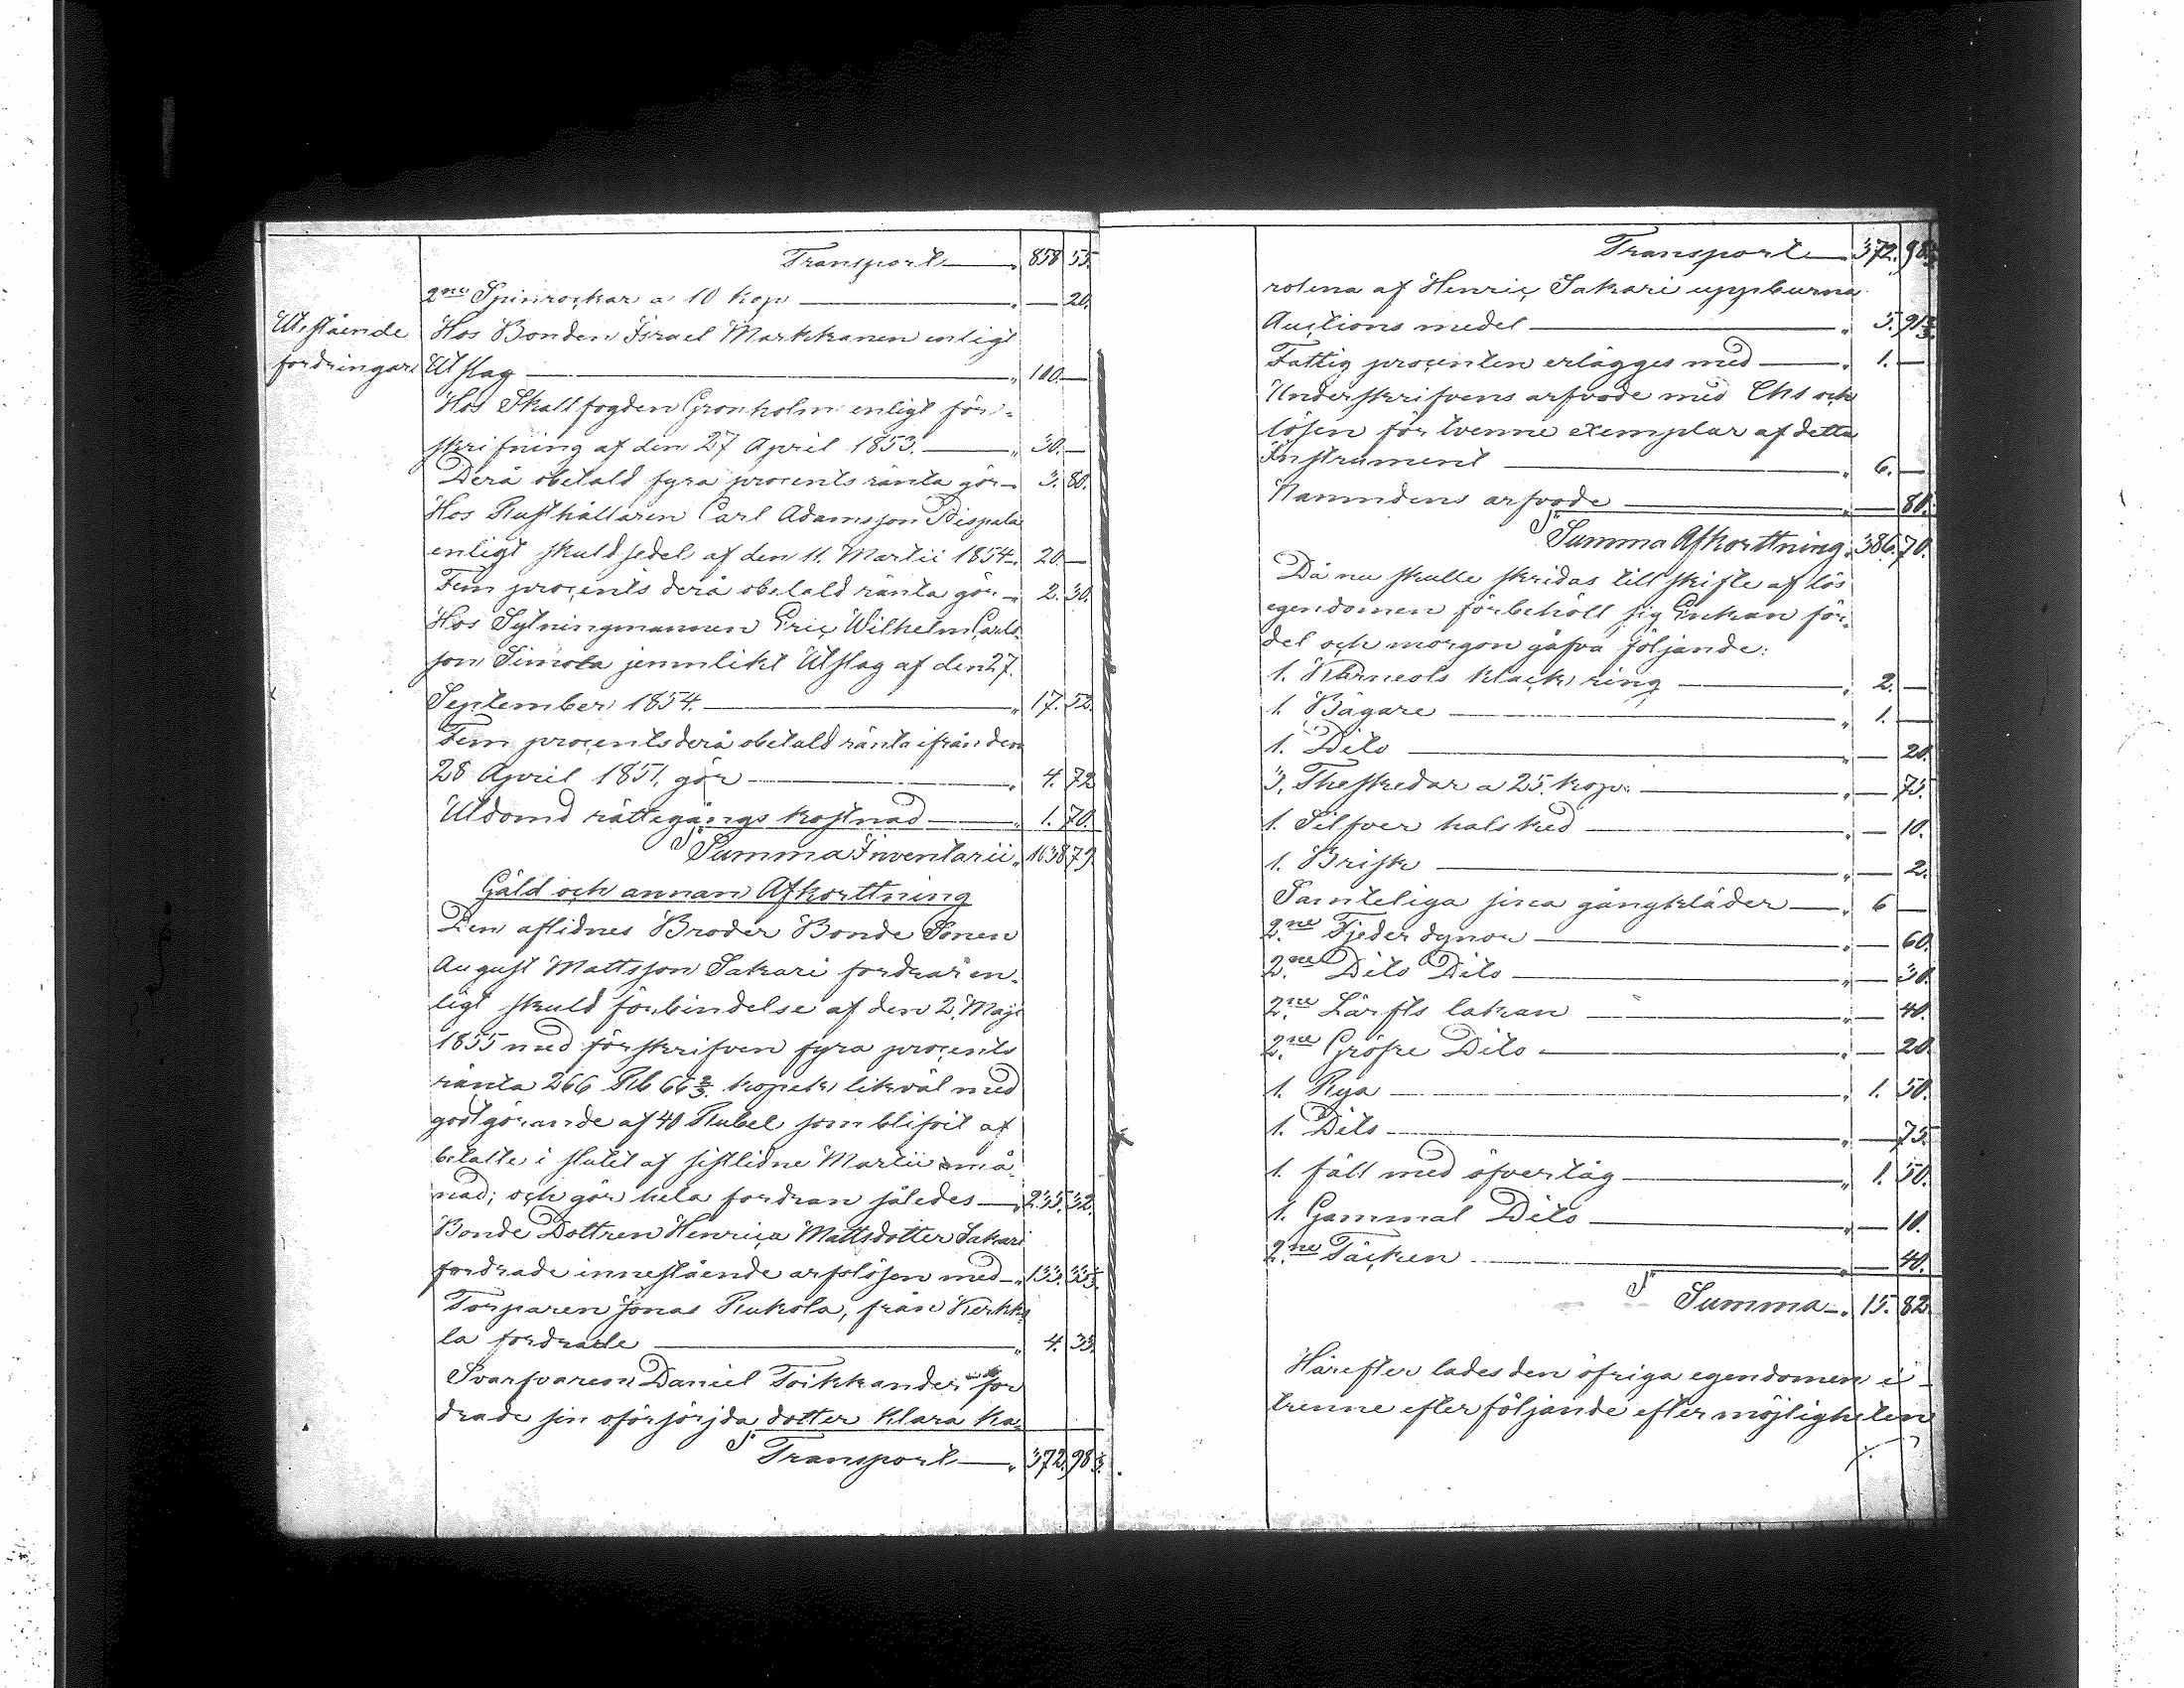 Transport — " 858 55.
2ne Spinrockar a 10 kop — " — 20.
Utstående fordringar
Hos Bonden Israel Markkanen enligt
Utslag — " 100. —
Hos Skallfogden Gronholm enligt för-
skrifning af den 27 April 1853. — " 30. —
Derå obetald fyra procents ränta gör — 3. 80.
Hos Rusthållaren Carl Adamsson Pispala
enligt skuldsedel af den 11. Martii 1854. 20. —
Fem procents derå obetald ränta gör — 2. 30.
Hos Sytningmannen Eric Wilhelm Carls-
son Simola jemnlikt Utslag af den 27.
September 1854. — " 17. 52.
Fem procents derå obetald ränta ifrån den
28 April 1851. gör — " 4. 72
Utdömd rättegångs kostnad — " 1. 70.
Summa Inventarii " 1038 79
Gäld och annan Afkorttning
Den aflidnes Broder Bonde Sonen
August Mattsson Sakari fordrar en-
ligt skuld förbindelse af den 2. Maji
1855 med förskrifven fyra procents
ränta 266 Rb 66 2/3. kopek, likväl med
godtgörande af 40 Rubel som blifvit af
betalte i slutet af sistlidne Martii må-
nad; och gör hela fordran således — " 235. 32.
Bonde Dottren Henrica Mattsdotter Sakari
fordrade innestående arfslösen med — " 133. 33 1/3.
Torparen Jonas Rukola, från Kerkko-
la fordrade — " 4. 33.
Svarfvaren Daniel Toikkander for
drade sin oförsörjda dotter Klara Ka-
Transport — " 372. 98 1/3.
Transport — 372. 98 1/3
rolina af Henric Sakari uppburna
Auctions medel — " 5. 91 2/3.
Fattig procenten erlägges med — " 1. —
Underskrifvens arfvode med Chs och
lösen för tvenne exemplar af detta
Instrument — " 6. —
Nämndens arfvode — " — 80.
Summa Afkorttning " 386. 70.
Då nu skulle skridas till skifte af lös
egendomen förbehöll sig Enkan för-
del och morgon gåfva följande:
1. Karneols klack ring — " 2. —
1. Bägare — " 1. —
1. Dito — " — 20.
3. Theskedar a 25. kop. — " — 75.
1. Silfver halsked — " — 10.
1. Brisk — " — 2.
Samteliga sina gångkläder — " 6 —
2.ne Fjeder dynor — " — 60.
2.ne Dito Dito — " — 30.
2.ne Lärfts lakan " — 40.
2.ne Gröfre Dito — " — 20
1. Rya — " 1. 50.
1. Dito — " — 75.
1. fäll med öfvertåg — " 1. 50.
1. Gammal Dito — " — 10.
2.ne Täcken — " — 40.
Summa — " 15. 82
Härefter lades den öfriga egendomen i
trenne efterföljande efter möjligheten